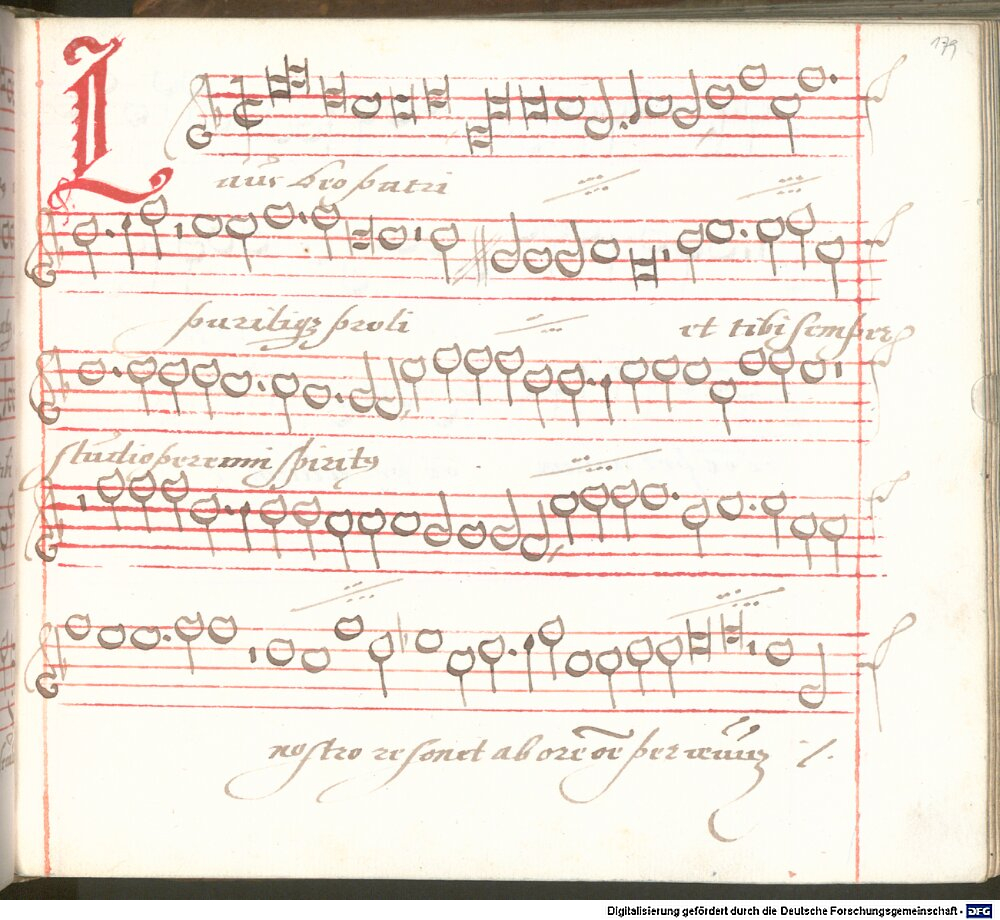 179
Laus deo patri
pariliqz proli et tibi semper
studio perenni spiritus
nostro resonet ab ore oē per
Digitalisierung gefördert durch die Deutsche Forschungsgemeinschaft - DFG